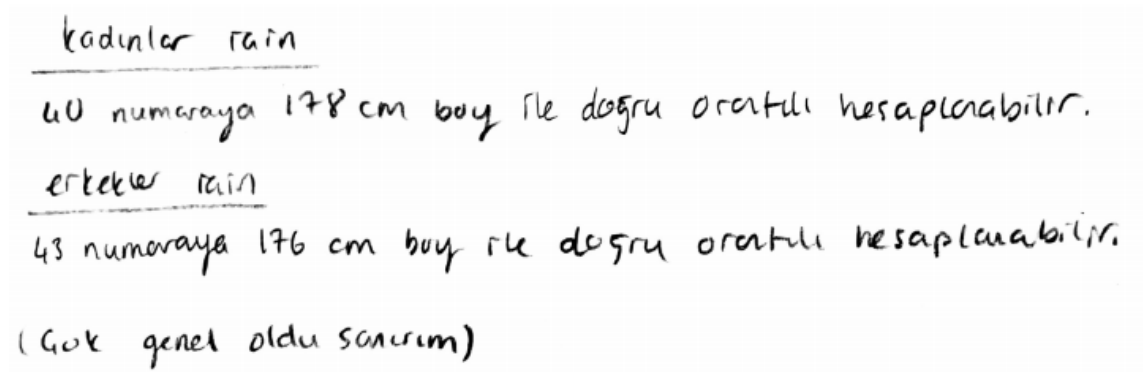 kadınlar için
40 numaraya 178 cm boy ile doğru orantılı hesaplanabilir.
erkekler için
43 numaraya 176 cm boy ile doğru orantılı hesaplanabilir.
(Çok genel oldu sanırım)